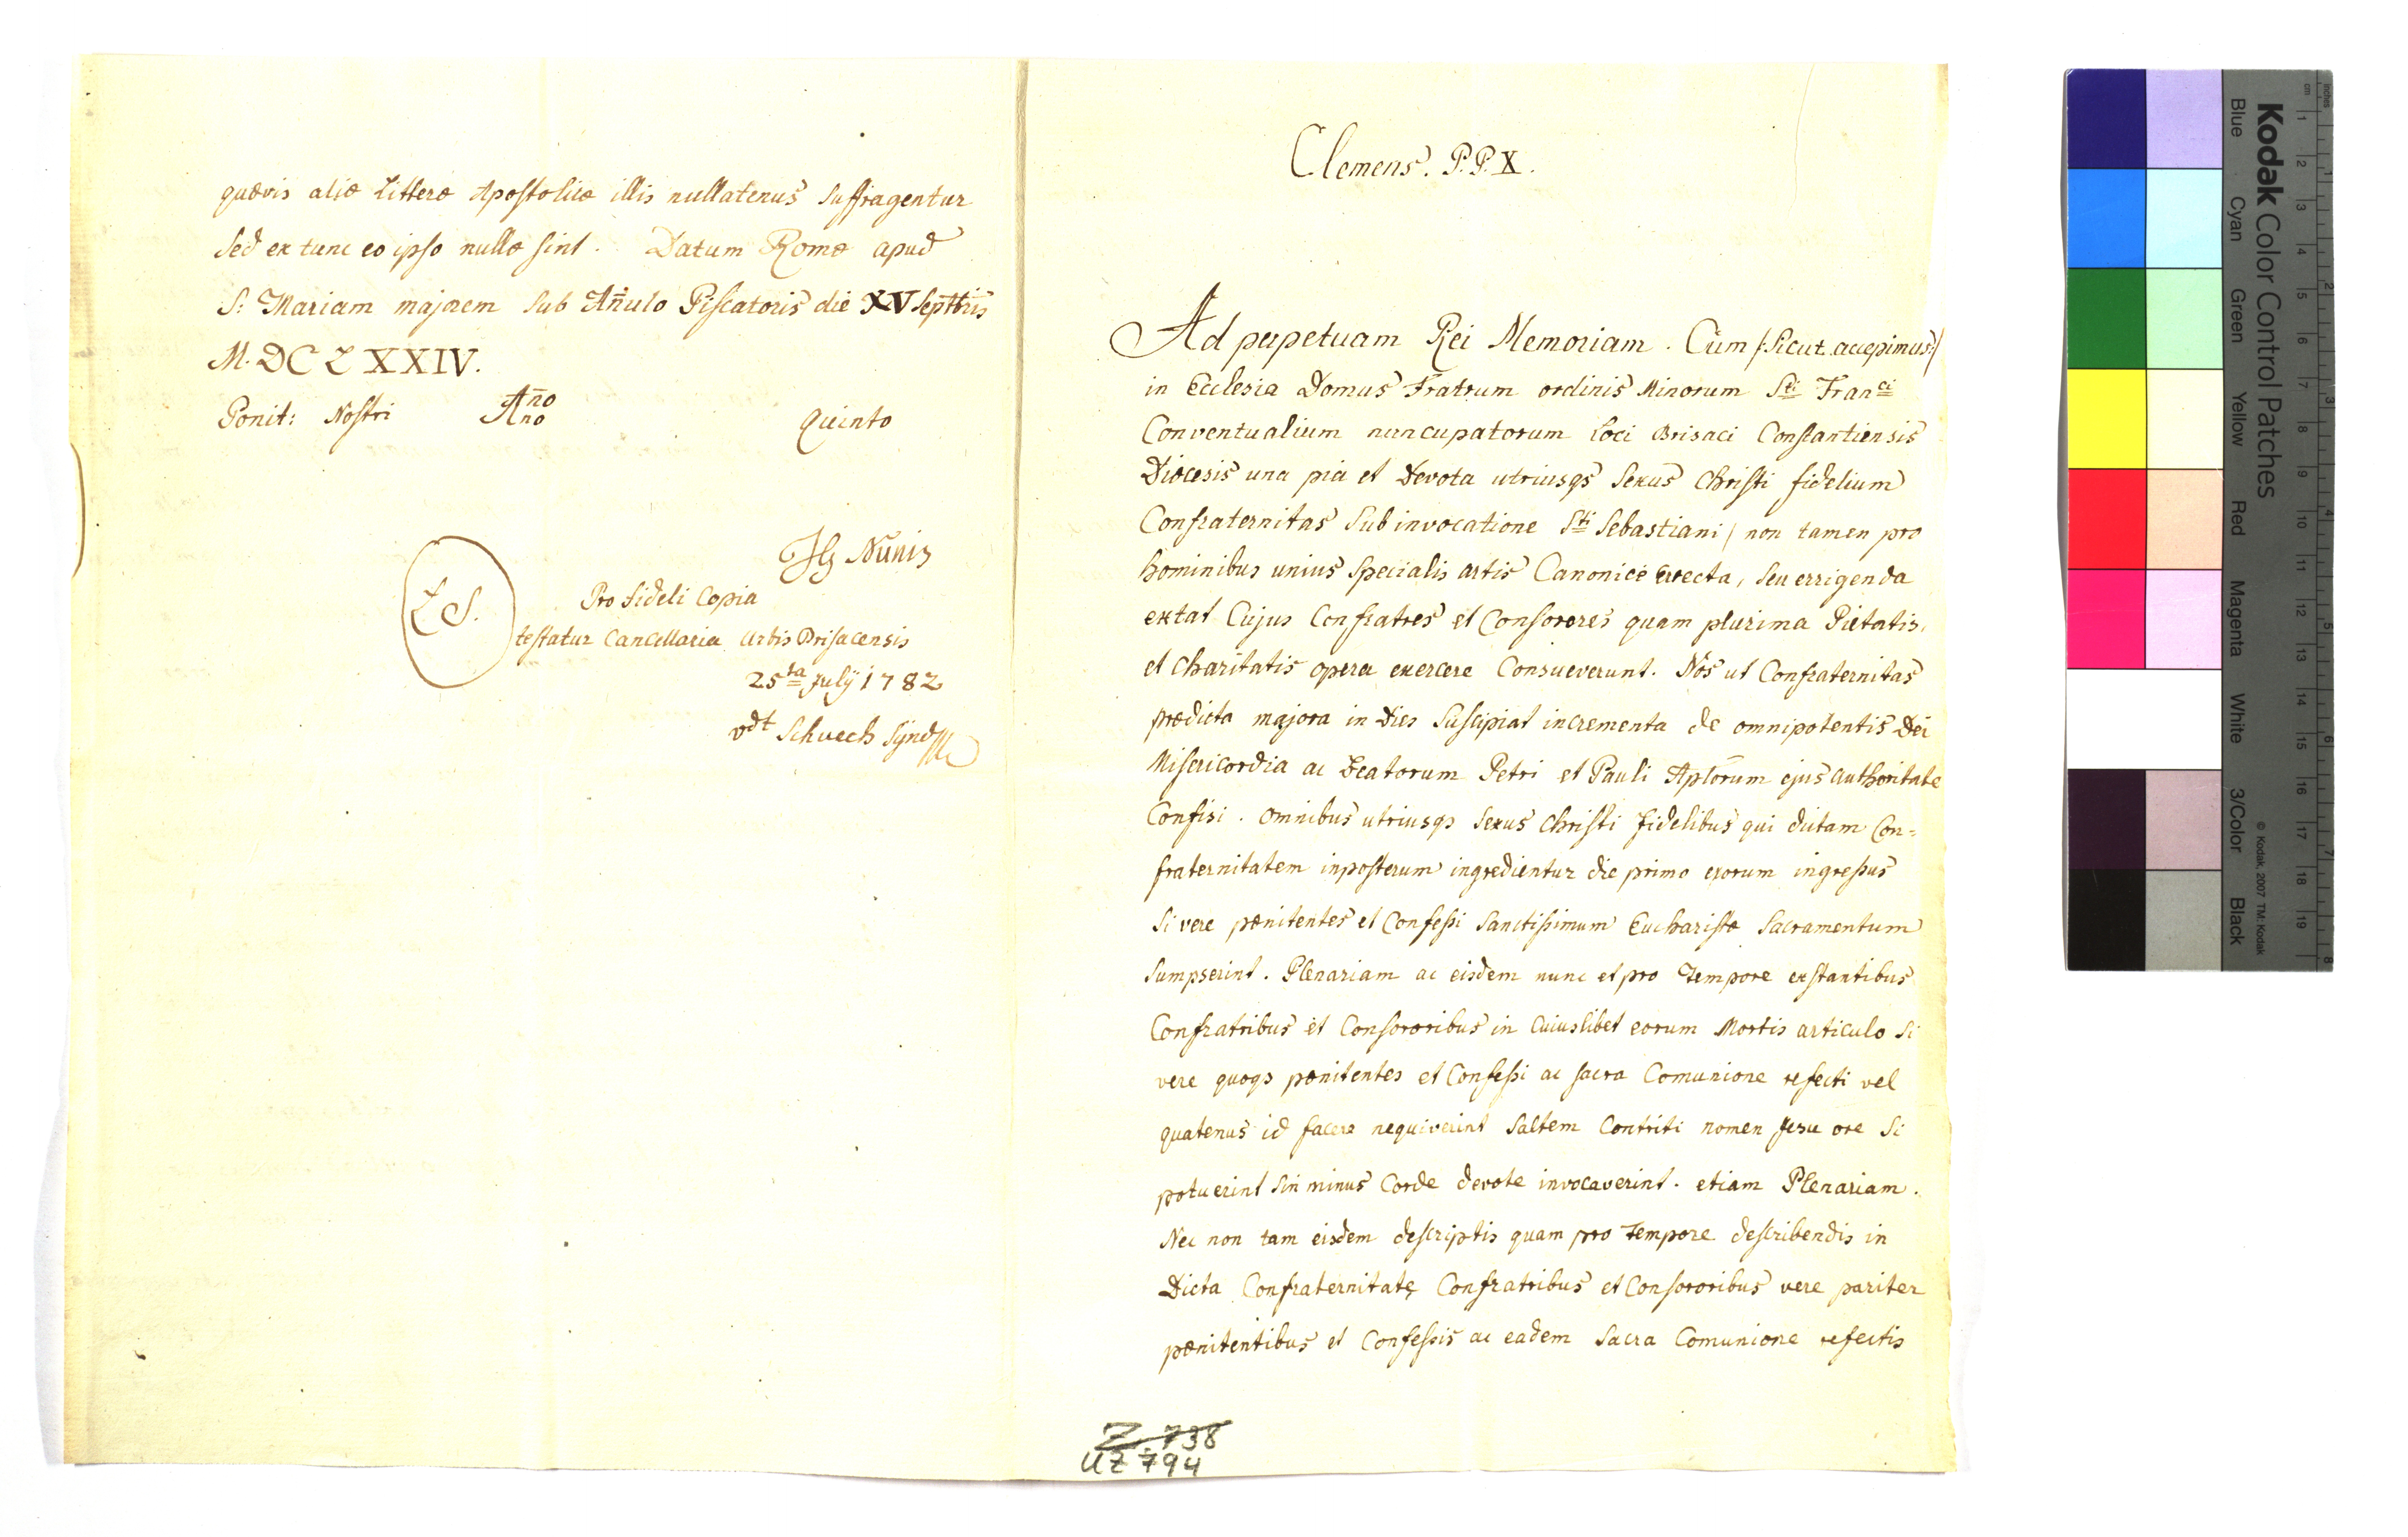 quævis aliæ Litteræ Apostolicæ illis nullatenus suffragentur
sed ex tunc eo ipso nullæ sint. Datum Romæ apud
S: Mariam majorem sub Añulo Piscatoris die XV Septbris
M.DCLXXIV.
Ponit: Nostri Añno Quinto
Nuniz
L S.
Pro fideli Copia
testatur Cancellaria Urbis Brisacensis
25ta July 1782
vdt Schuech Synd
Clemens. P.P. X.
Ad perpetuam Rei Memoriam. Cum /: sicut accepimus :/
in Ecclesia Domus Fratrum ordinis Minorum Sti Franci
Conventualium nuncupatorum Loci Brisaci Constantiensis
Diocesis una pia et Devota utriusqs sexus Christi fidelium
Confraternitas sub invocatione Sti Sebastiani / non tamen pro
hominibus unius specialis artis Canonice Erecta, seu errigenda
extat Cujus Confratres et Consorores quam plurima Pietatis,
et charitatis opera exercere Consueverunt. Nos ut Confraternitas
prædicta majora in Dies suscipiat incrementa de omnipotentis Dei
Misericordia ac Beatorum Petri et Pauli Aplorum ejus authoritate
Confisi. omnibus utriusqs sexus Christi fidelibus qui dictam Con=
fraternitatem inposterum ingredientur die primo eorum ingressus
si vere pœnitentes et Confessi sanctissimum Eucharistæ sacramentum
sumpserint. Plenariam ac eisdem nunc et pro tempore exstantibus
Confratribus et Consororibus in cuiuslibet eorum Mortis articulo si
vere quoqs pœnitentes et Confessi ac sacra Comunione refecti vel
quatenus id facere nequiverint saltem Contriti nomen Jesu ore si
potuerint sin minus Corde devote invocaverint. etiam Plenariam.
Nec non tam eisdem descriptis quam pro tempore describendis in
Dicta Confraternitate Confratribus et Consororibus vere pariter
pœnitentibus et Confessis ac eadem sacra Comunione refectis
Z 738
UZ 794
Kodak Color Control Patches
Blue Cyan Green Yellow Red Magenta White 3/Color Black
© Kodak, 2007 TM: Kodak
cm 1 2 3 4 5 6 7 8 9 10 11 12 13 14 15 16 17 18 19
inches 1 2 3 4 5 6 7 8